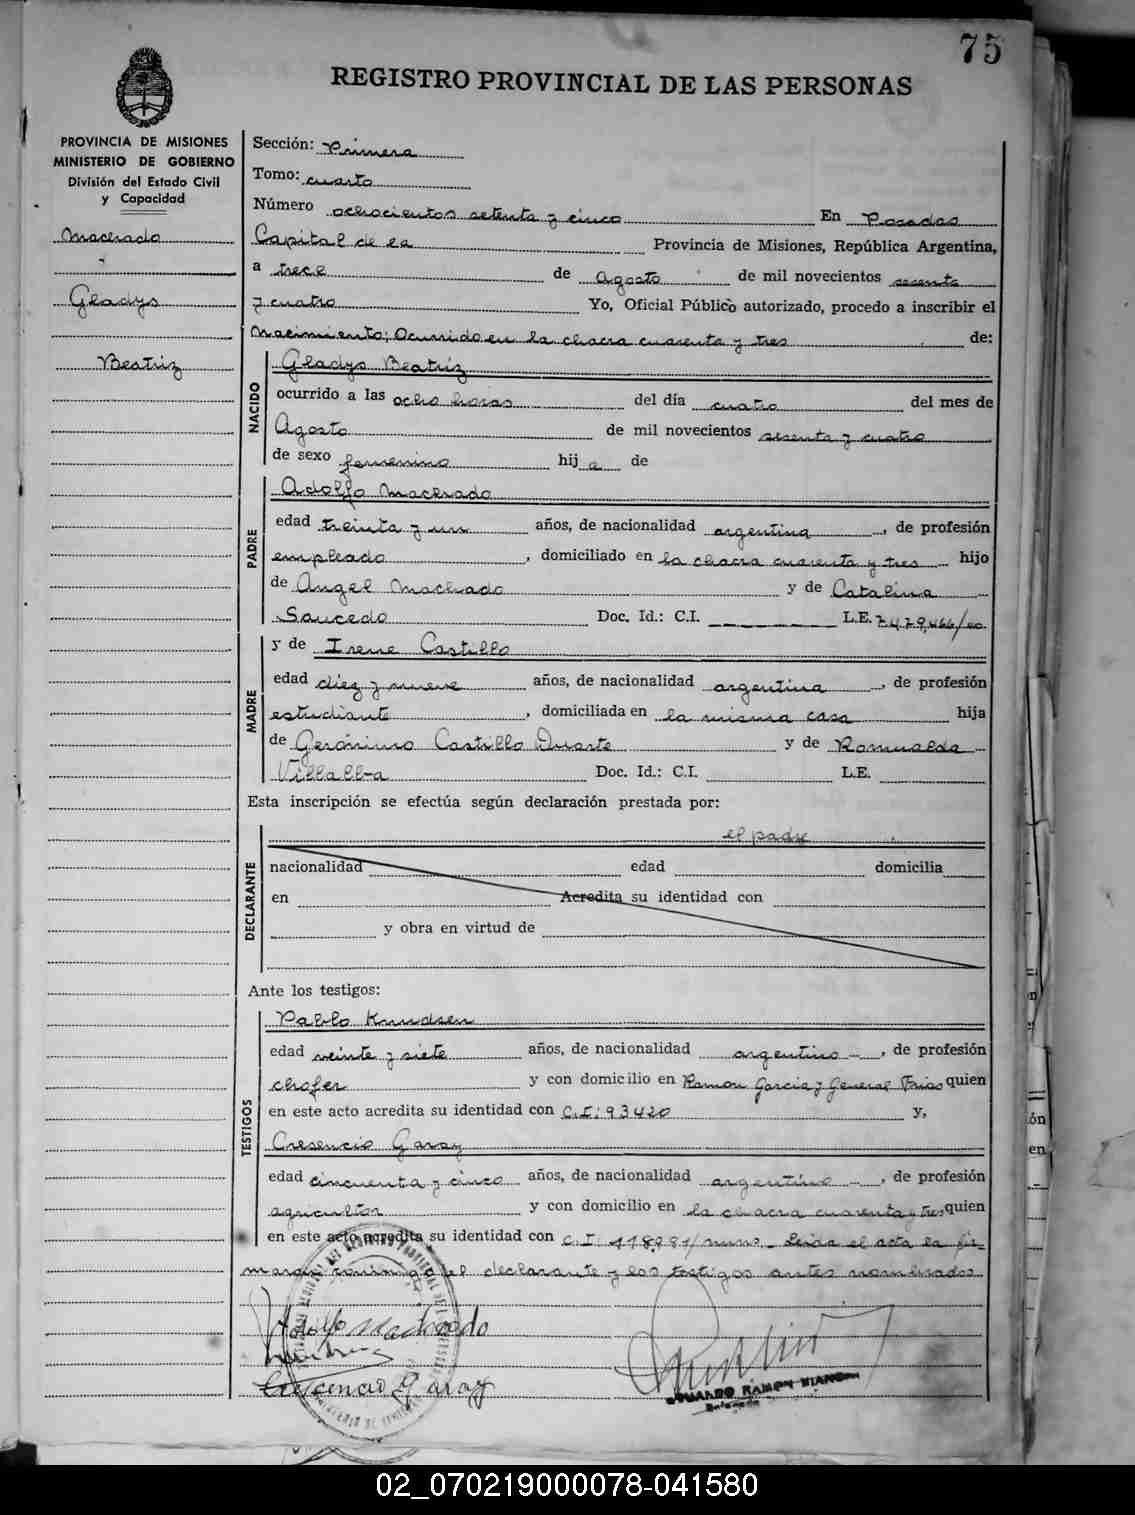 75
REGISTRO PROVINCIAL DE LAS PERSONAS
PROVINCIA DE MISIONES
MINISTERIO DE GOBIERNO
División del Estado Civil
y Capacidad
Machado
Gladys
Beatriz
Sección: Primera
Tomo: cuarto
Número ochocientos setenta y cinco En Posadas
Capital de la Provincia de Misiones, República Argentina,
a trece de Agosto de mil novecientos sesenta
y cuatro Yo, Oficial Público autorizado, procedo a inscribir el
Nacimiento; Ocurrido en la chacra cuarenta y tres de:
NACIDO
Gladys Beatriz
ocurrido a las ocho horas del día cuatro del mes de
Agosto de mil novecientos sesenta y cuatro
de sexo femenino hij a de
PADRE
Adolfo Machado
edad treinta y un años, de nacionalidad argentina, de profesión
empleado, domiciliado en la chacra cuarenta y tres hijo
de Angel Machado y de Catalina
Saucedo Doc. Id.: C.I. L.E. 7.479.466/
MADRE
y de Irene Castillo
edad diez y nueve años, de nacionalidad argentina, de profesión
estudiante, domiciliada en la misma casa hija
de Gerónimo Castillo Duarte y de Romualda
Villalba Doc. Id.: C.I. L.E.
Esta inscripción se efectúa según declaración prestada por:
DECLARANTE
el padre
nacionalidad edad domicilia
en Acredita su identidad con
y obra en virtud de
Ante los testigos:
TESTIGOS
Pablo Knudsen
edad veinte y siete años, de nacionalidad argentino, de profesión
chofer y con domicilio en Ramon Garcia y General Frias quien
en este acto acredita su identidad con C.I: 93420 y,
Cresencio Garay
edad cincuenta y cinco años, de nacionalidad argentino, de profesión
agricultor y con domicilio en la chacra cuarenta y tres quien
en este acto acredita su identidad con C.I: 118.981/mnes. Leida el acta la fir-
man conmigo el declarante y los testigos antes nombrados
Adolfo Machado
Crescencio Garay
EDUARDO RAMON
02_070219000078-041580